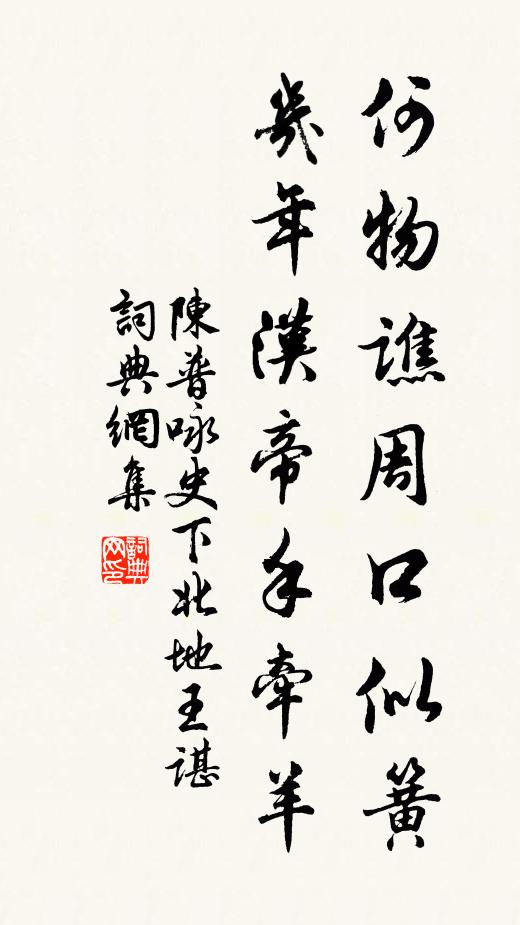 何物譙周口似簧
幾年漢帝手牽羊
陳普咏史下北地王諶
詞典網集
詞典網印